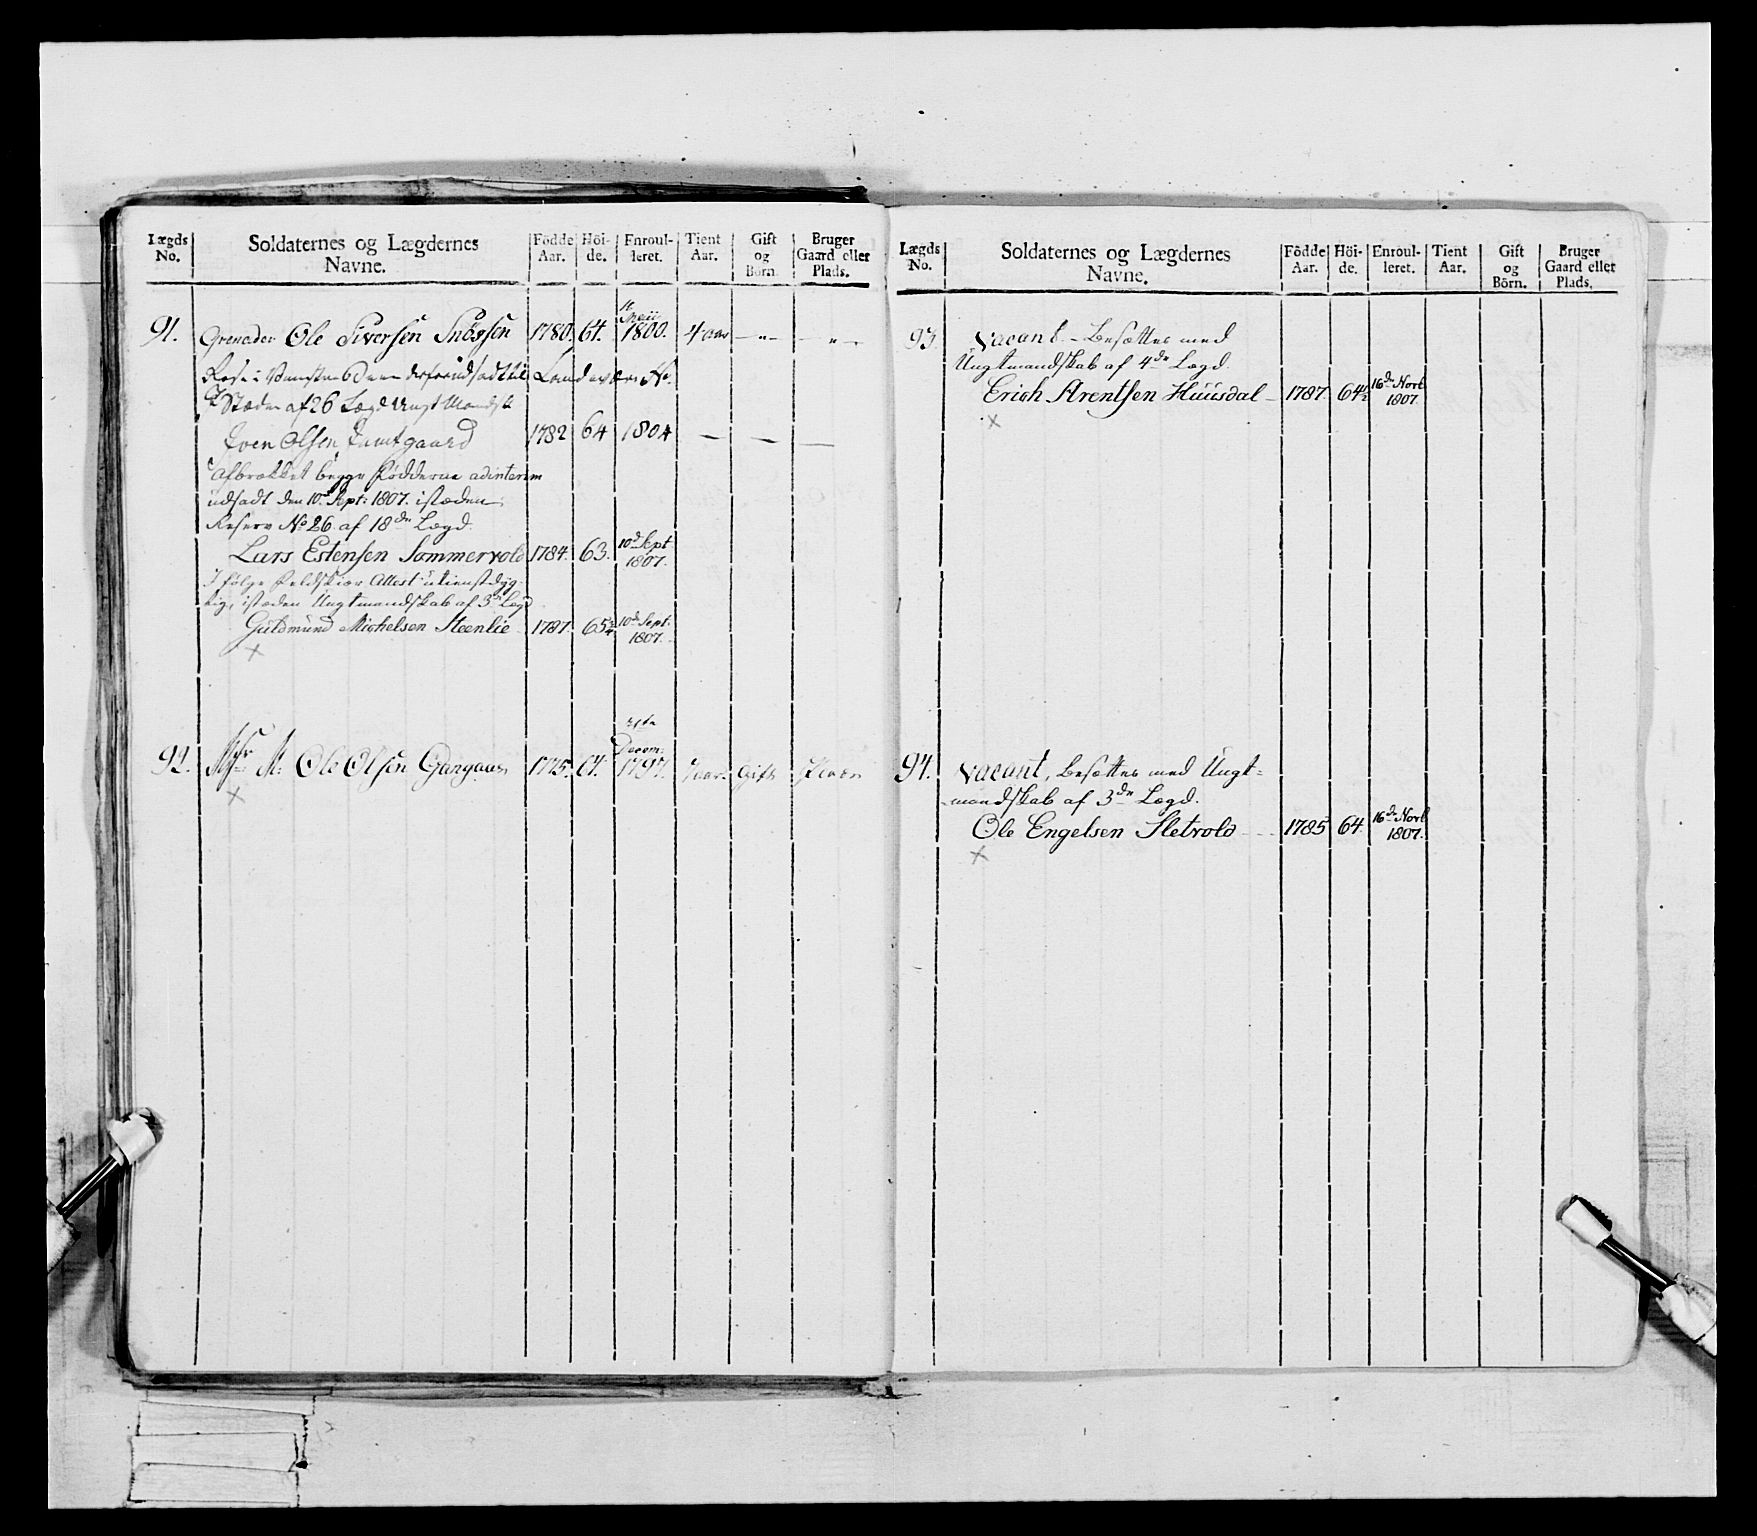 Lægds No. | Soldaternes og Lægdernes Navne. | Födde Aar. | Höi-de. | Enroul-leret. | Tient Aar. | Gift og Börn. | Bruger Gaard eller Plads.
91. Grenader Ole Siversen Snögsen 1780. 64. Maii 1800. 4 aar — „ — — „ —
i Land No.
Stæden af 26 Lægd Ungt Mandsk
Iven Olsen Jamtgaard 1782 64 1804 — — —
Afbrækket begge Födderne adinterim
udsadt den 10d Sept: 1807. istæden
Reserv No 26. af 18de Lægd.
Lars Estensen Sommervold 1784. 63. 10d Sept 1807.
Ifølge Feldskiær Attest utienstdyg-
tig, istæden Ungtmandskab af 3de Lægd
Guldmund Michelsen Steenlie 1787. 65 3/4 10de Sept. 1807.
×
92. M: Ole Olsen Gangaas 1775. 64. 31te Decem: 1797. 7 aar. Gift
×
Lægds No. | Soldaternes og Lægdernes Navne. | Födde Aar. | Höi-de. | Enroul-leret. | Tient Aar. | Gift og Börn. | Bruger Gaard eller Plads.
93 Vacant. – Besættes med
Ungtmandskab af 4de Lægd.
Erich Arentsen Huusdal – 1787 64 1/2 16de Novb 1807.
×
94. Vacant, Besættes med Ungt=
-mandskab af 3de Lægd.
Ole Engelsen Sletvold – – 1785 64. 16de Novb 1807.
×